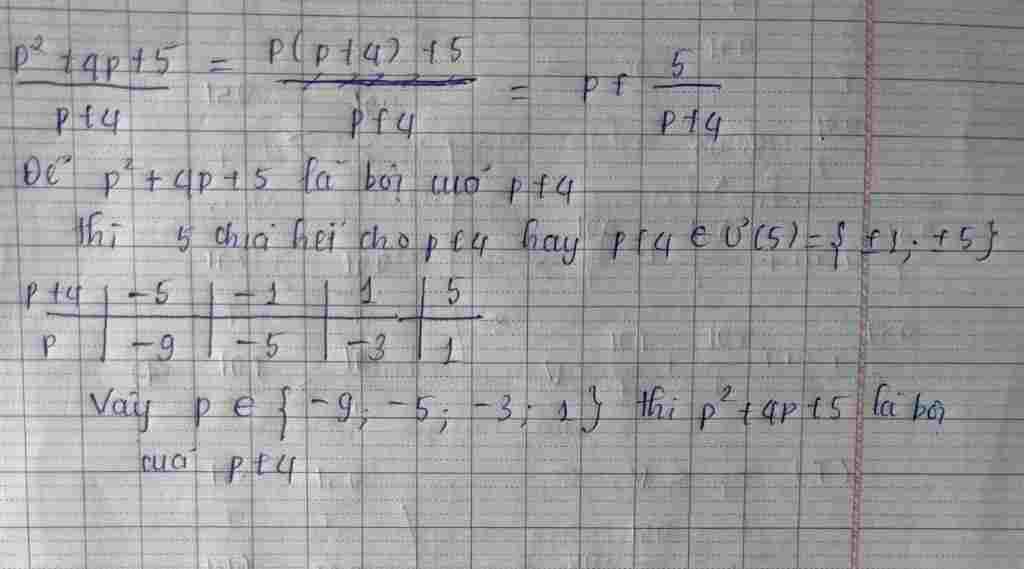 p² + 4p + 5 / p + 4 = p(p + 4) + 5 / p + 4 = p + 5 / p + 4
Để p² + 4p + 5 là bội của p + 4
thì 5 chia hết cho p + 4 hay p + 4 ∈ Ư(5) = {±1; ±5}
p + 4 | -5 | -1 | 1 | 5
p | -9 | -5 | -3 | 1
Vậy p ∈ {-9; -5; -3; 1} thì p² + 4p + 5 là bội
của p + 4